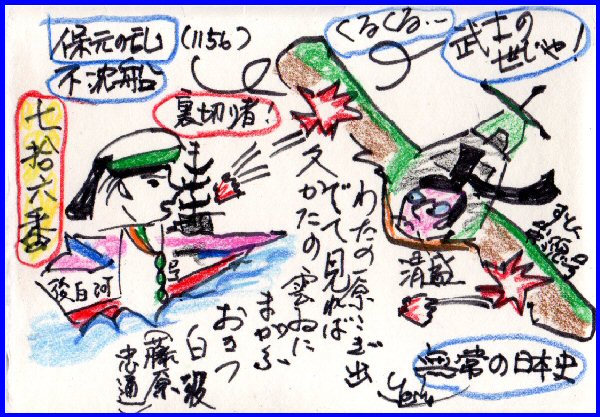 保元の乱
(1156)
不沈船
くるくる…
武士の
世じゃ!
裏切り者!
七拾六番
わたの原こぎ出
でて見れば
久かたの雲ゐに
まがふ
おきつ
白波
(藤原
忠通)
後白河
号
清盛
無常の日本史